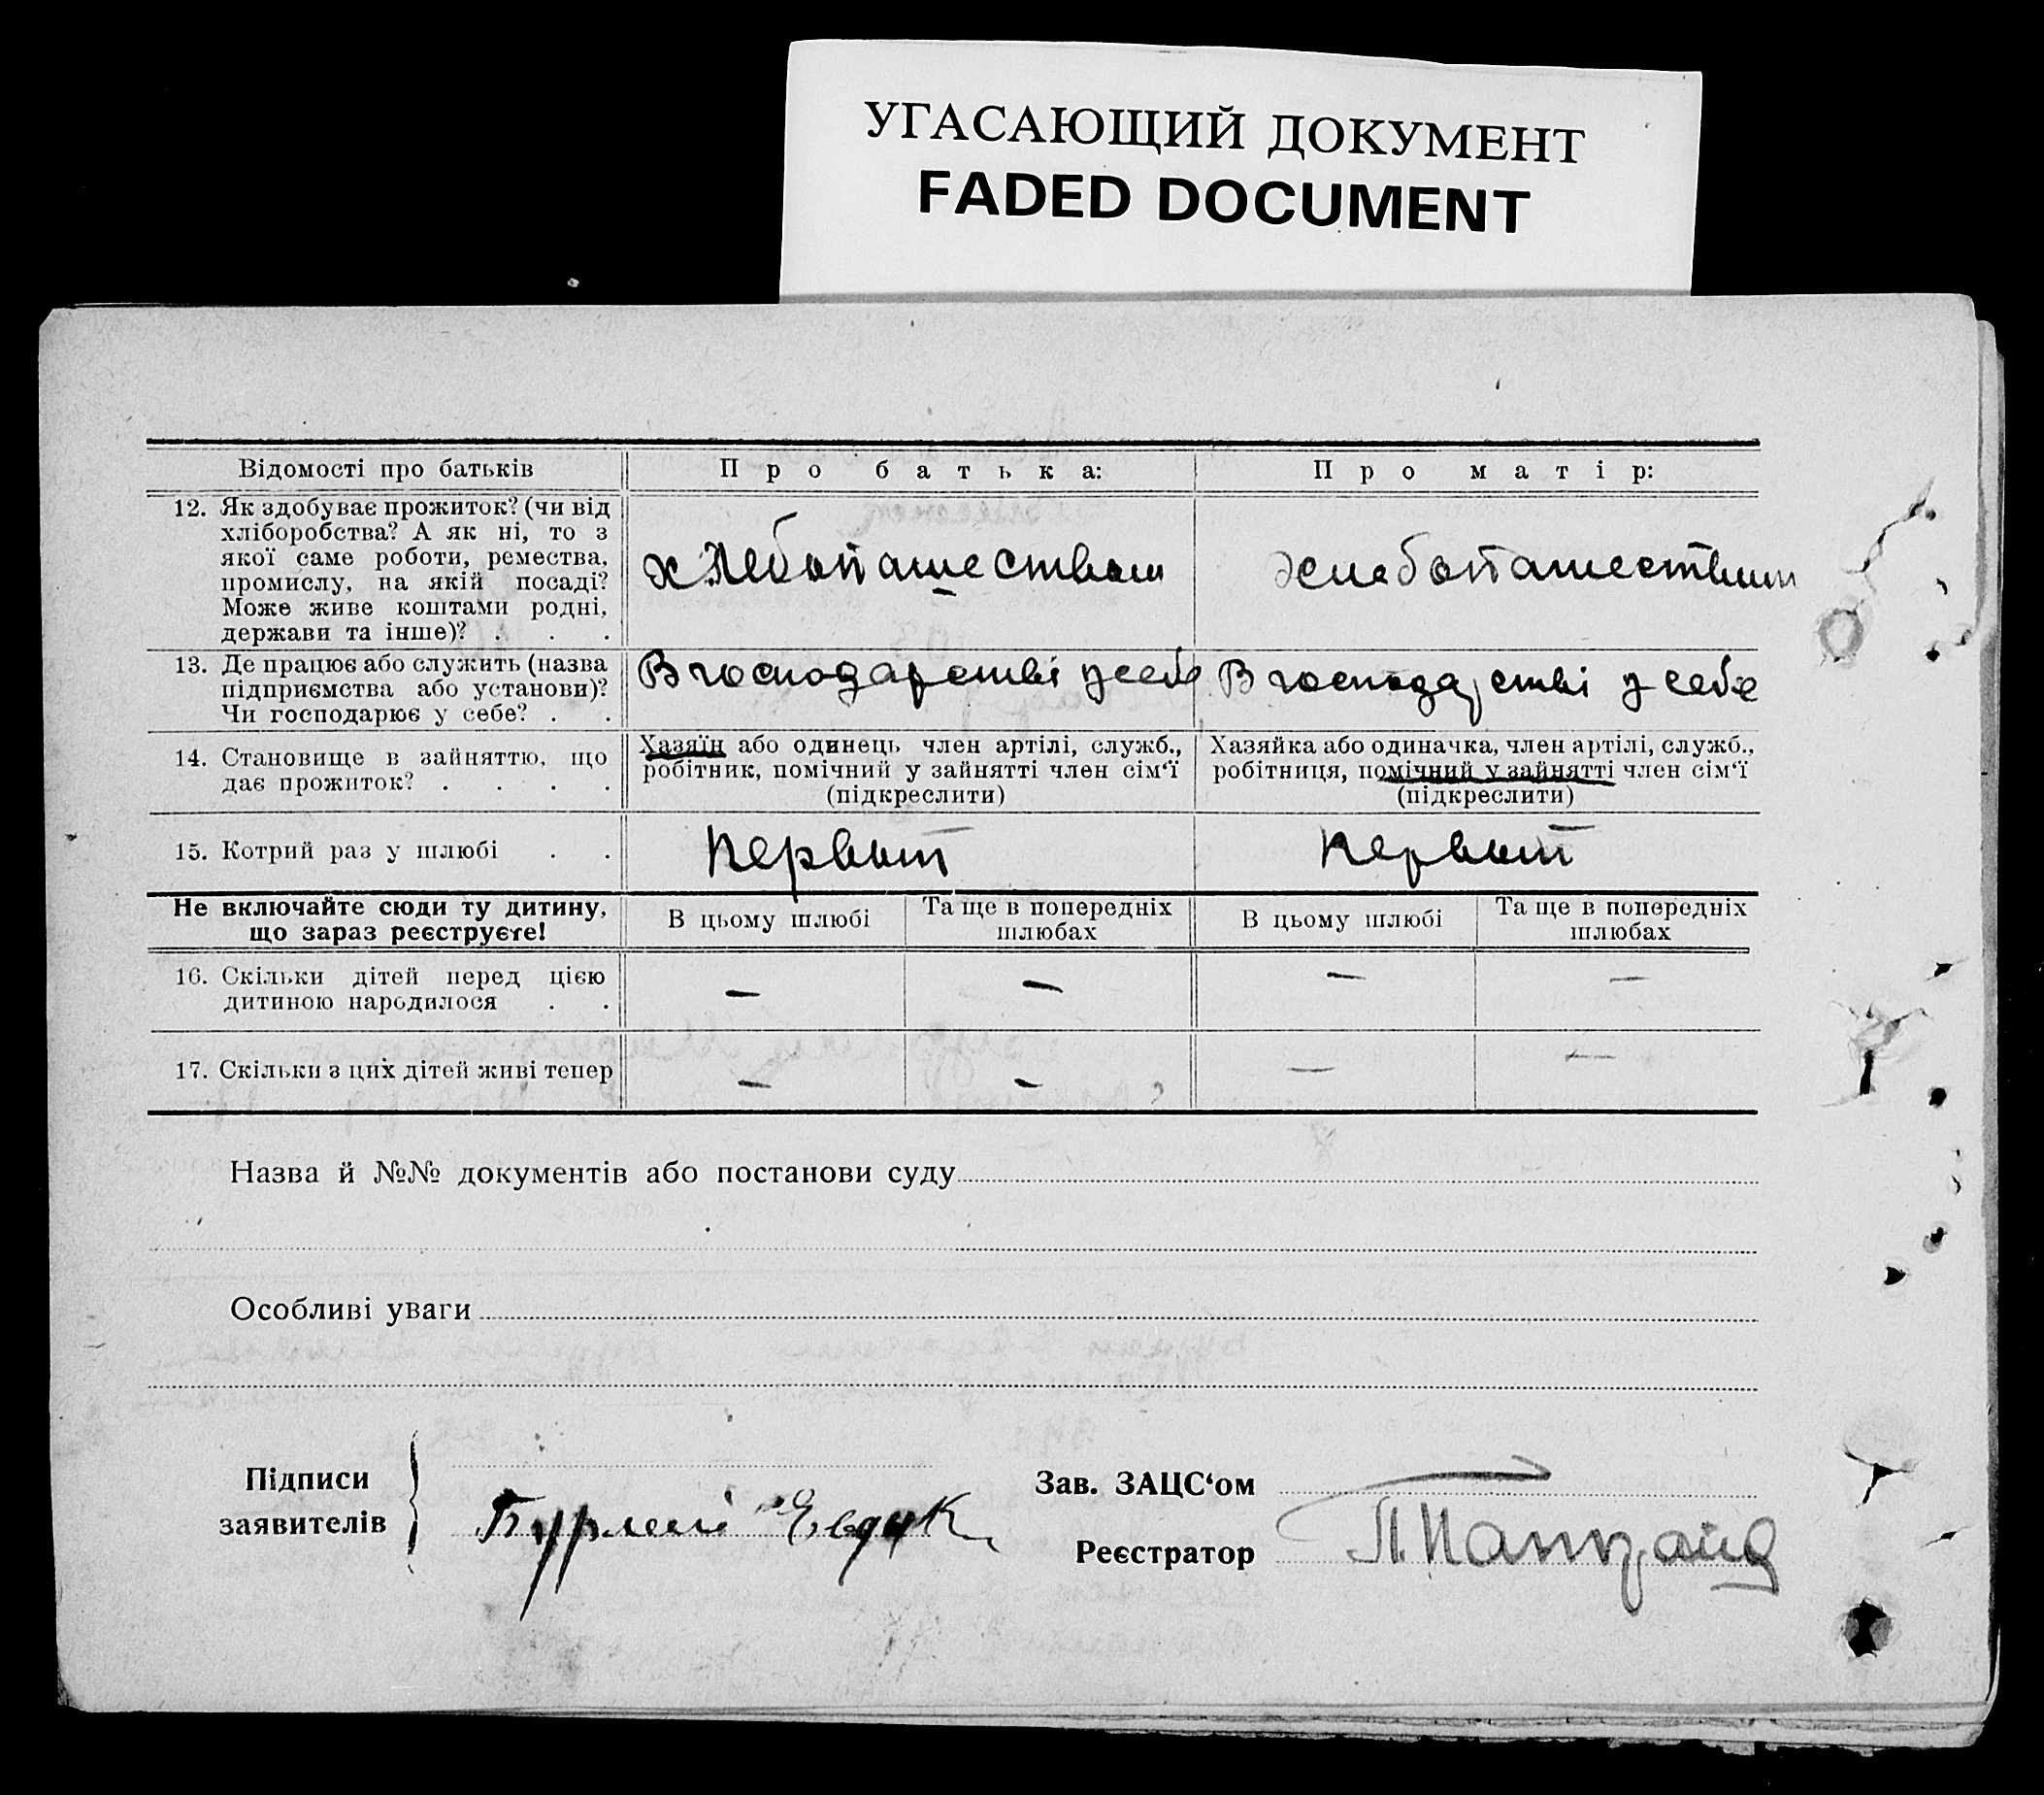 УГАСАЮЩИЙ ДОКУМЕНТ
FADED DOCUMENT
Відомості про батьків
Про батька:
Про матір:
12. Як здобуває прожиток? (чи від
хліборобства? А як ні, то з
якої саме роботи, ремества,
промислу, на якій посаді?
Може живе коштами родні,
держави та інше)? . . .
хлебопашеством
хлебопашеством
13. Де працює або служить (назва
підприємства або установи)?
Чи господарює у себе? . .
В господарстві у себе
В господарстві у себе
14. Становище в зайняттю, що
дає прожиток? . . . .
Хазяїн або одинець член артілі, служб.,
робітник, помічний у зайнятті член сім‘ї
(підкреслити)
Хазяйка або одиначка, член артілі, служб.,
робітниця, помічний у зайнятті член сім‘ї
(підкреслити)
15. Котрий раз у шлюбі . .
Первый
Первый
Не включайте сюди ту дитину,
що зараз реєструєте!
В цьому шлюбі
Та ще в попередніх
шлюбах
В цьому шлюбі
Та ще в попередніх
шлюбах
16. Скільки дітей перед цією
дитиною народилося . .
— — — —
17. Скільки з цих дітей живі тепер
— — — —
Назва й №№ документів або постанови суду
Особливі уваги
Підписи
заявителів
Бурлай
Зав. ЗАЦС‘ом
Реєстратор